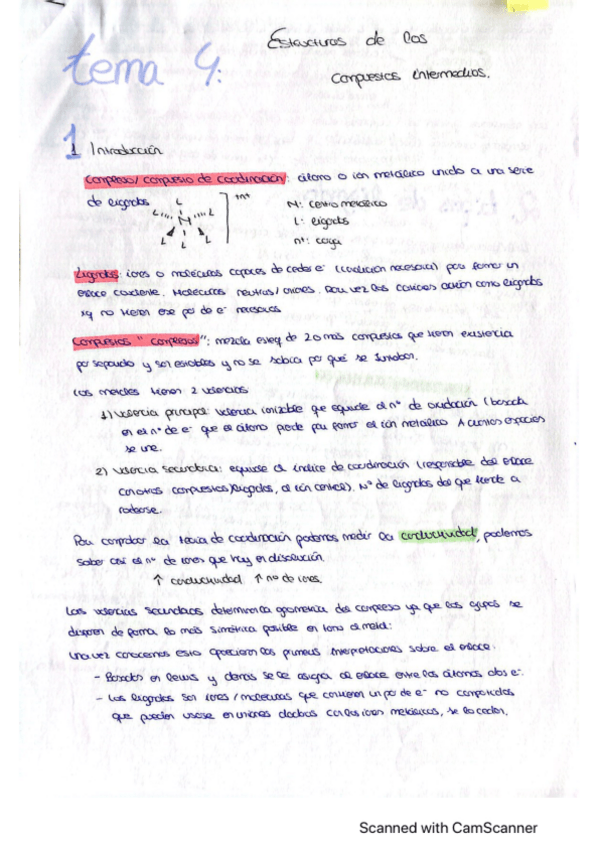 tema 4:
Estructuras de los
compuestos intermedios.
1 Introducción
Complejo/compuesto de coordinación: átomo o ión metálico unido a una serie
de ligandos
M: centro metálico
L: ligandos
n+: carga
Ligandos: iones o moléculas capaces de ceder e- (condición necesaria) para formar un
enlace covalente. Moléculas neutras/aniones. Rara vez los cationes actúan como ligandos
xq no tienen ese par de e- necesarios
Compuestos "complejos": mezcla esteq de 2 o más compuestos que tienen existencia
por separado y son estables y no se sabía por qué se juntaban.
Los metales tienen 2 valencias
1) Valencia principal: valencia ionizable que equivale al nº de oxidación (basada
en el nº de e- que el átomo pierde para formar el ión metálico. A cuántas especies
se une.
2) Valencia secundaria: equivale al índice de coordinación (responsable del enlace
con otros compuestos/ligandos, al ión central). Nº de ligandos del que tiende a
rodearse.
Para comprobar la teoría de coordinación podemos medir la conductividad, podemos
saber así el nº de iones que hay en disolución.
↑ conductividad ↑ nº de iones.
Las valencias secundarias determinan la geometría del complejo ya que los grupos se
disponen de forma lo más simétrica posible en torno al metal:
Una vez conocemos esto aparecen las primeras interpretaciones sobre el enlace:
- Basados en Lewis y demás se le asigna al enlace entre los átomos dos e-.
- Los ligandos son iones/moléculas que contienen un par de e- no compartidos
que pueden usarse en uniones dadoras con los iones metálicos, se los ceden.
Scanned with CamScanner